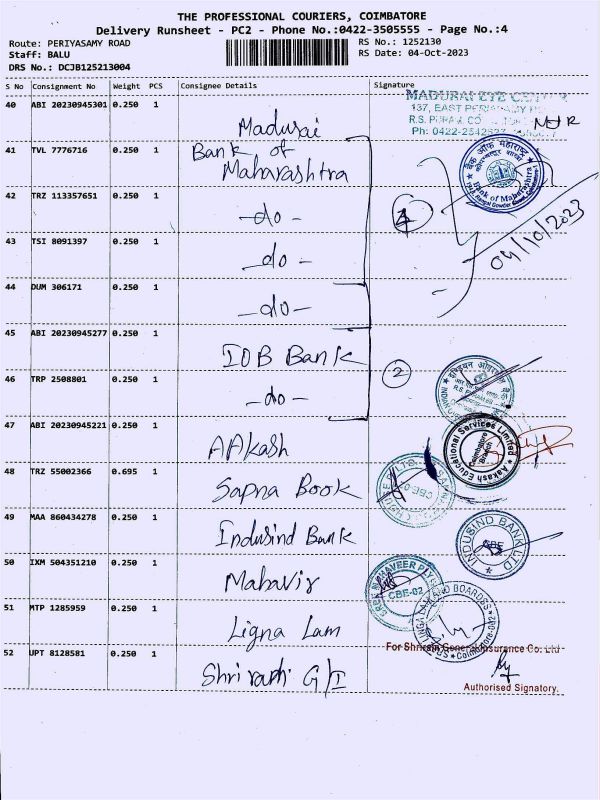 THE PROFESSIONAL COURIERS, COIMBATORE
Delivery Runsheet - PC2 - Phone No.:0422-3505555 - Page No.:4
Route: PERIYASAMY ROAD RS No.: 1252130
Staff: BALU RS Date: 04-Oct-2023
DRS No.: DCJB125213004
S No Consignment No Weight PCS Consignee Details Signature
40 ABI 20230945301 0.250 1 Madurai
MADURAI EYE
137, EAST
R.S. PURAM, CO
Ph: 0422-
41 TVL 7776716 0.250 1 Bank of Maharashtra
बैंक ऑफ महाराष्ट्र
Bank of Maharashtra
42 TRZ 113357651 0.250 1 -do- 4
43 TSI 8091397 0.250 1 -do- 04/10/2023
44 DUM 306171 0.250 1 -do-
45 ABI 20230945277 0.250 1 IOB Bank
46 TRP 2508801 0.250 1 -do- 2
47 ABI 20230945221 0.250 1 AAkash
Aakash Educational Services Limited
Coimbatore Branch
48 TRZ 55002366 0.695 1 Sapna Book
49 MAA 860434278 0.250 1 Indusind Bank
INDUSIND BANK LTD
CBE
50 IXM 504351210 0.250 1 Mahavir
SREE MAHAVEER PLY
CBE-02
51 MTP 1285959 0.250 1 Ligna Lam
AND BOARDS
Coimbatore-002
52 UPT 8128581 0.250 1 Shri ram G/I
For Shriram General Insurance Co. Ltd
Authorised Signatory.